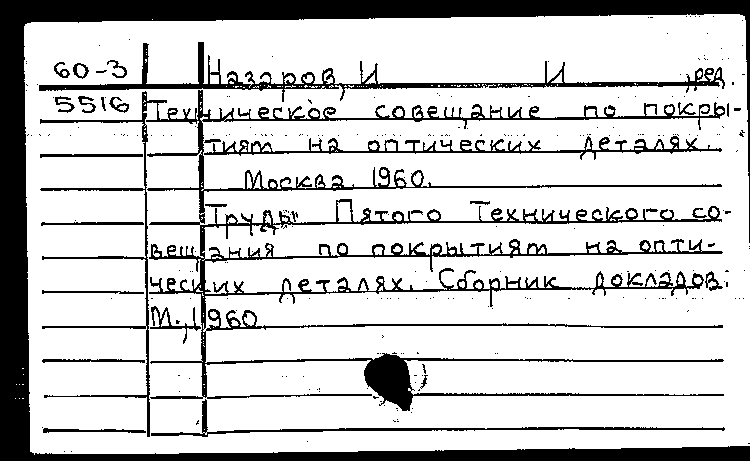 60-3 Назаров, И И ,ред.
5516 Техническое совещание по покры-
тиям на оптических деталях.
Москва. 1960.
Труды Пятого Технического со-
вещания по покрытиям на опти-
ческих деталях. Сборник докладов.
М., 1960